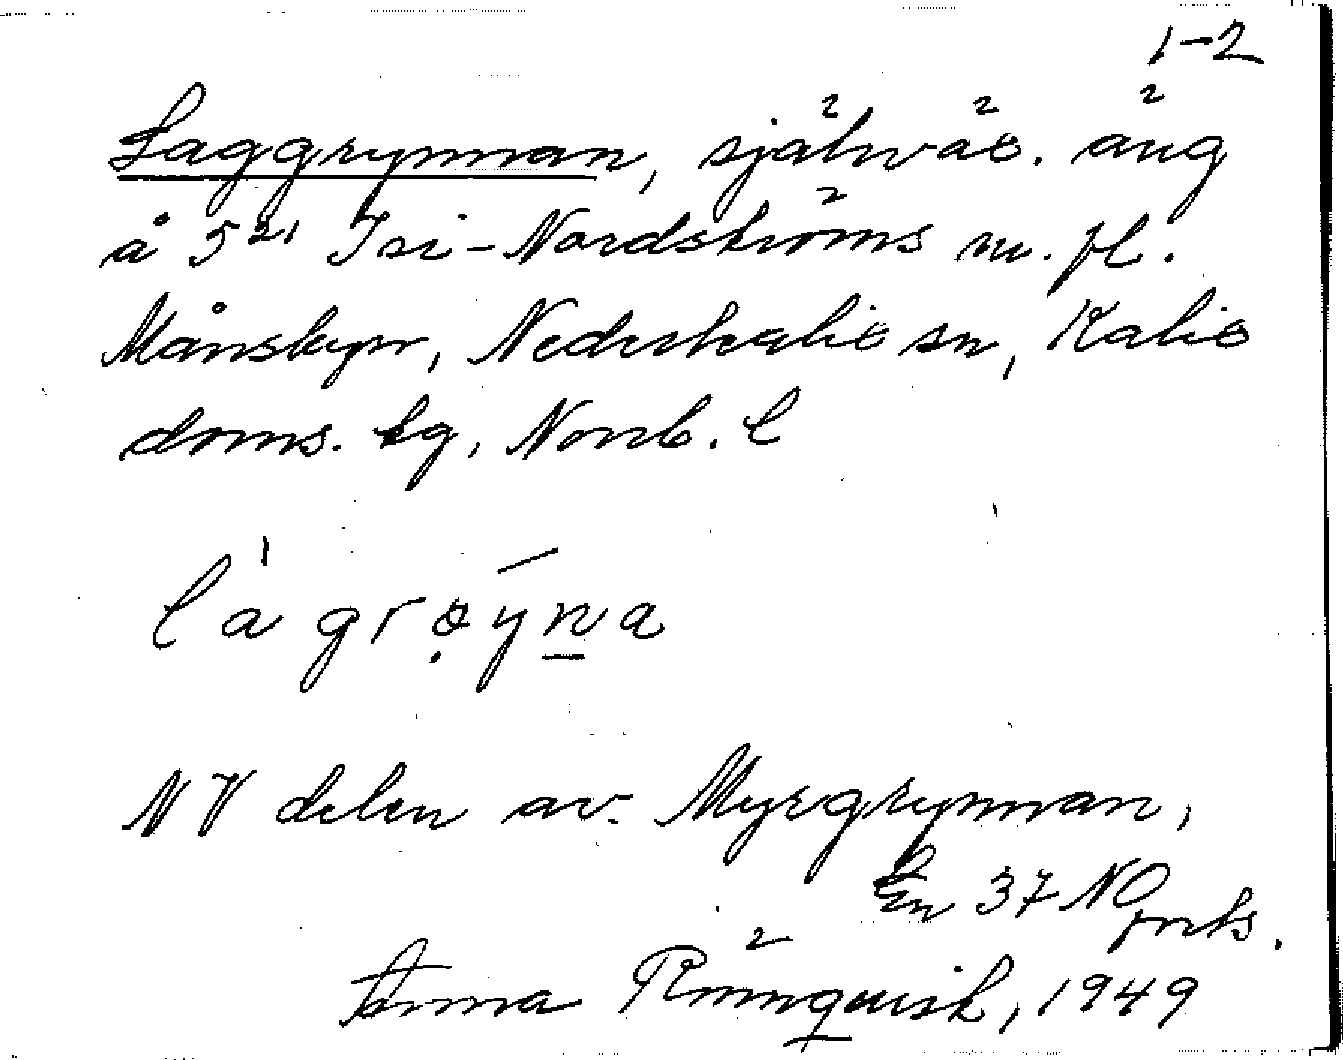 1-2
Laggrynnan, själväs. äng
å 5²¹ Isi-Nordströms m. fl.
Månsbyn, Nederkalix sn, Kalix
doms. tg, Norrb. l
lágrøyna
NV delen av Myrgrynnan,
En 37 NO
Anna Rönnqvist, 1949